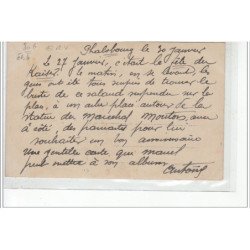 Phalsbourg le 30 Janvier
Le 27 Janvier, c'était la fête du
Kaiser. le matin, en se levant, les
gens ont été tous surpris de trouver le
buste de ce salaud suspendu sur la
place, à un arbre place autour de la
statue du Marechal Mouton, avec
à côté, des pancartes pour lui
souhaiter un bon anniversaire
Une gentille carte que marcel
peut mettre à son album
Antoine